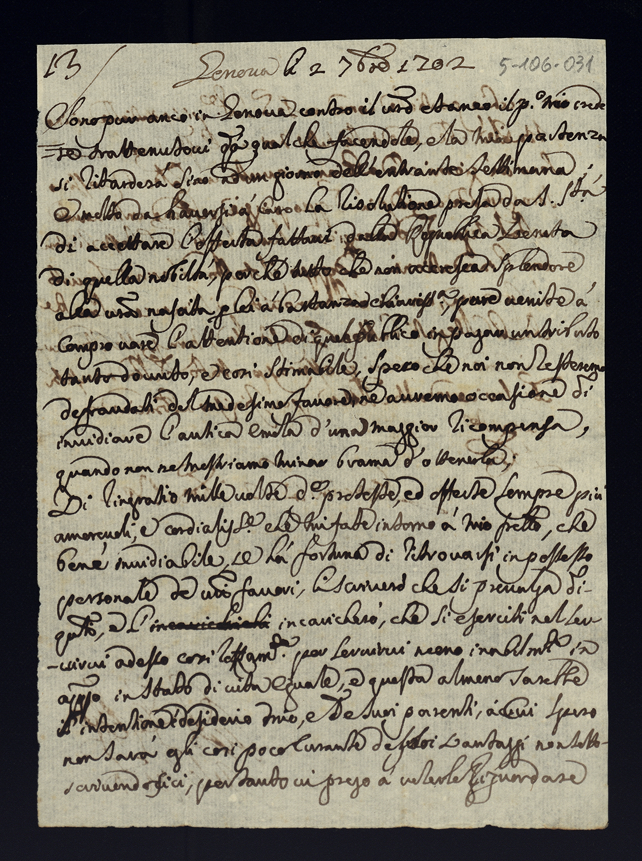 13/ Genova li 2 7bre 1702 5-106-031
Sono pur anco in Genova contro il vro et anco il p.o mio crede
re trattenutovi qualche facendola, e la mia partenza
si ritarderà sino ad un giorno dell'entrante settimana,
E molto da haversi a caro la risolutione presa da S. Stà
di accettare l'offerta fattavi dalla Republica Veneta
di quella nobiltà, perché tutto che non accresca splendore
alla vra nascita p lei abastanza chiariss.a, pure venite à
comprovare l'attentione di quel publico in pagar un tributo
tanto dovuto, e così stimabile, spero che noi non resteremo
defraudati del medesimo favore, ne avremo occasione di
invidiare l'antica emula d'una maggior ricompensa,
quando non ne mostriamo minor brama d'ottenerla;
Vi ringratio mille volte proteste, ed offerte sempre più
amorevoli, e cordialiss.e che mi fate intorno à mio frello, che
bene invidiabile, se hà fortuna di ritrovarsi in possesso
personale de vri favori, scriverò che si prevalga di
qsto, e incaricherò, che si eserciti nel ser
virvi adesso così per servirvi meno in
app.o in stato di vita eguale, e questa almeno sarebbe
intentione, e desiderio mio, e de suoi parenti, à cui spero
non sarà egli così poco curante de suoi vantaggi non
scrivendogici, per tanto vi prego à volerlo riguardare